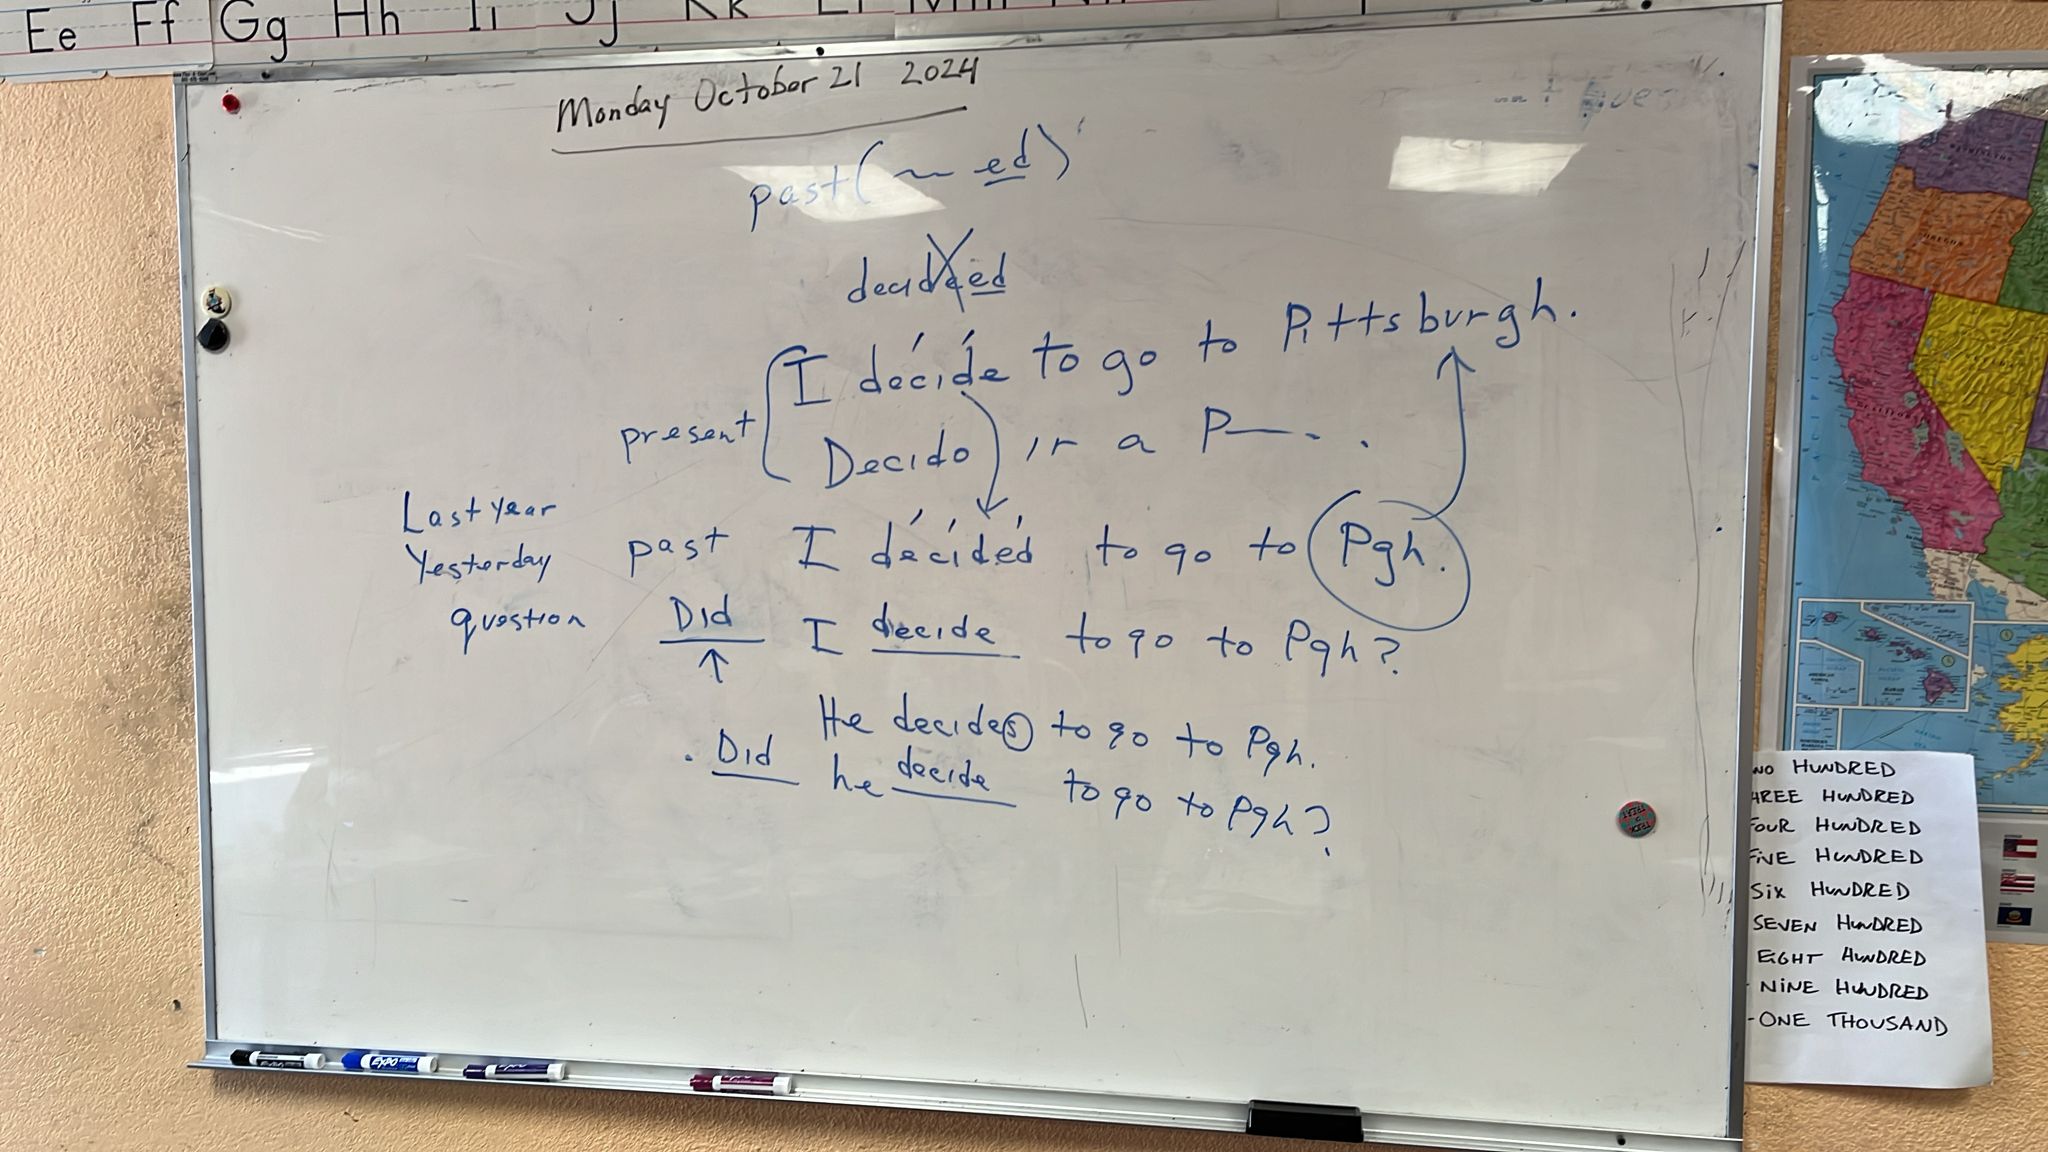 Ee Ff Gg Hh Ii Jj Kk
Monday October 21 2024
past (~ ed)
decideed
I decide to go to Pittsburgh.
present
Decido ir a P
Last year
Yesterday
past I decided to go to Pgh.
question Did I decide to go to Pgh?
He decides to go to Pgh.
Did he decide to go to Pgh?
WASHINGTON
OREGON
CALIFORNIA
PACIFIC
HUNDRED
HREE HUNDRED
FOUR HUNDRED
FIVE HUNDRED
SIX HUNDRED
SEVEN HUNDRED
EIGHT HUNDRED
- NINE HUNDRED
- ONE THOUSAND
EXPO